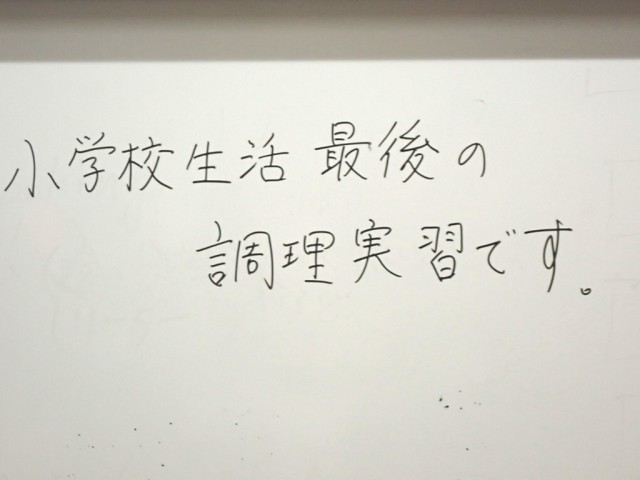 小学校生活 最後の
調理実習です。